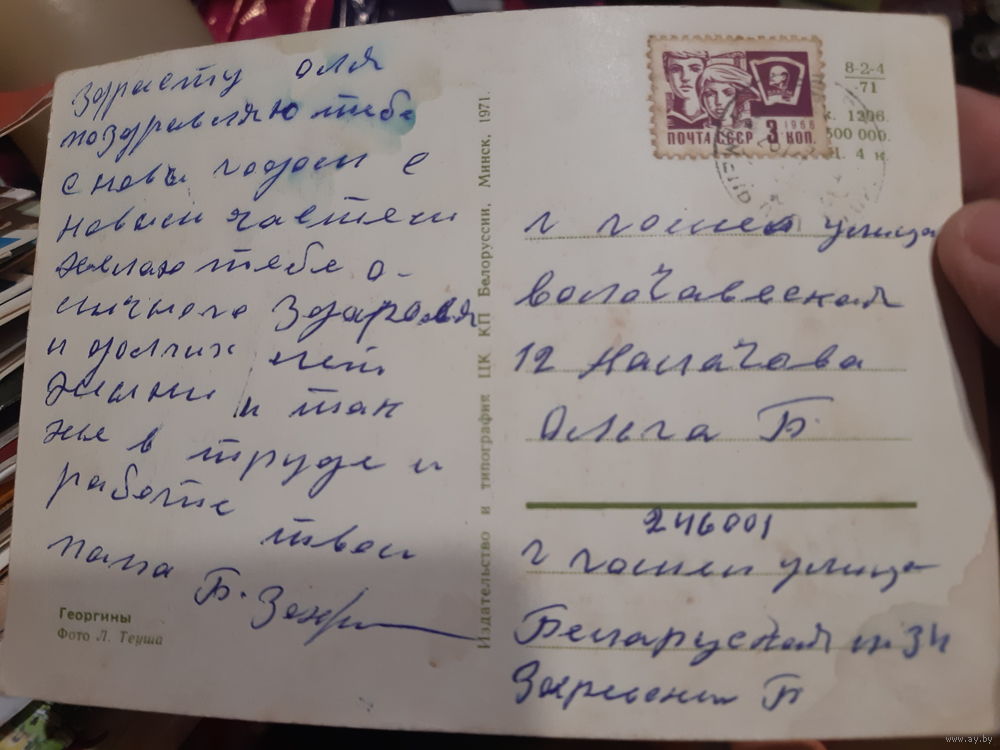 здрасту оля
поздровляю тебе
с новы годом с
новым частем
желаю тебе о-
личного Здаровя
и долгих лет
жизни и так
же в труде и
работе
твои
папа Б.
Георгины
Фото Л. Теуша
Издательство и типография ЦК КП Белоруссии, Минск, 1971.
ПОЧТА СССР 3 КОП.
1966
8-2-4
-71
1206.
500 000.
4 к.
г гомел улица
12
Ольга Б.
246001
г гомел улица
Беларуская 34
Б
www.ay.by